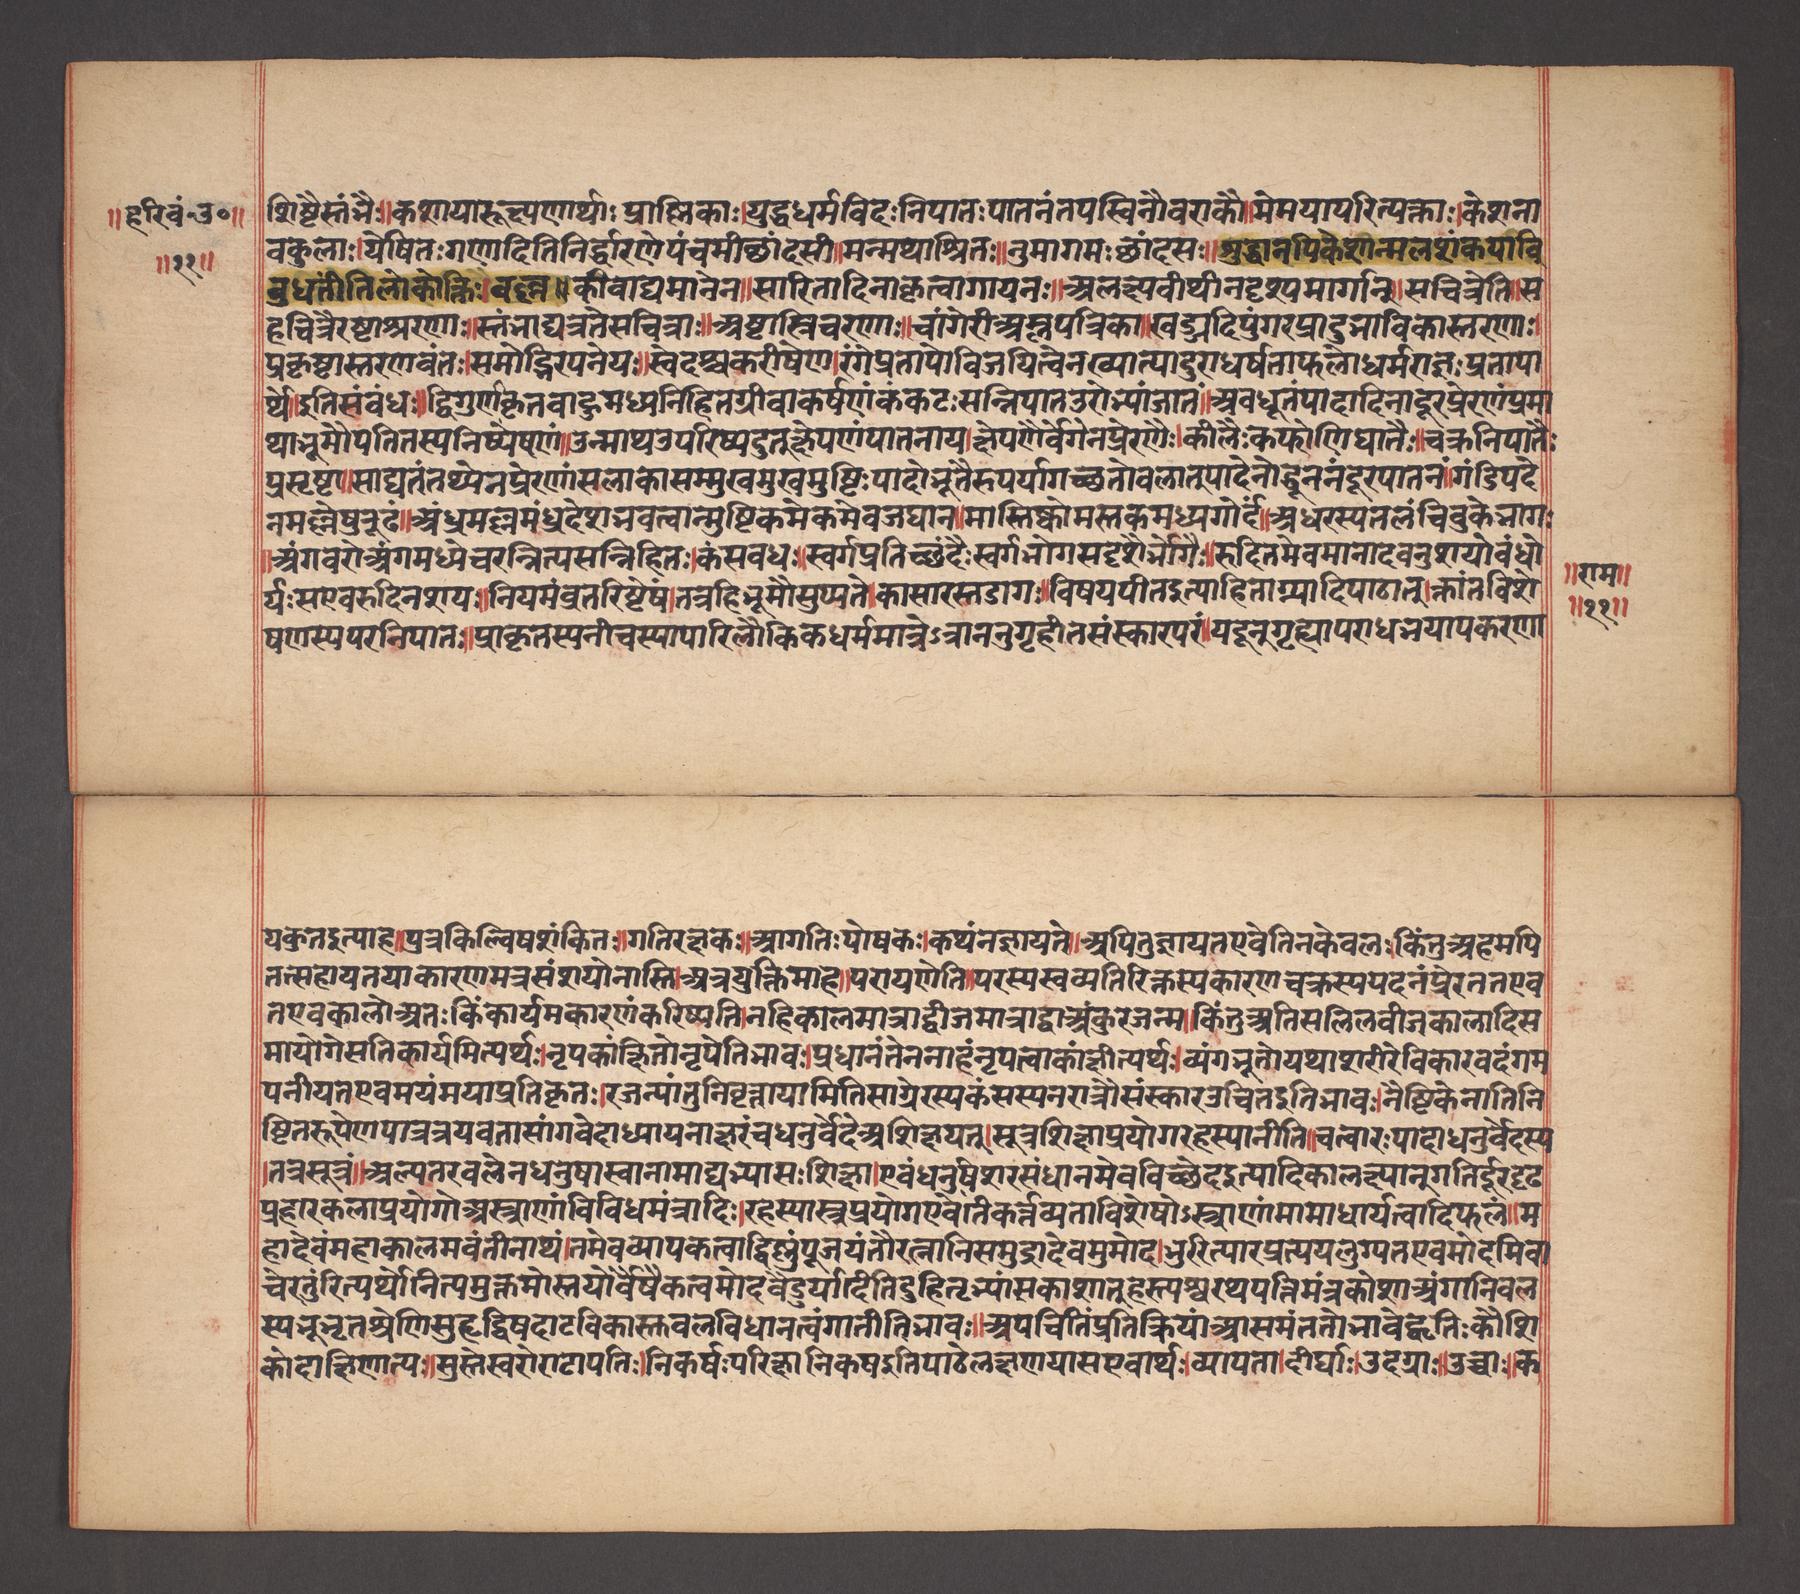 ॥हरिवं॰उ॰॥
॥२२॥
शिष्टैस्तंभैः॥कशायारूत्पणार्थाः प्राश्निकाः॥युद्धधर्मविदः निपातः पातनंतपस्विनौवराकौ॥मेमयापरित्यक्ताः॥केशना
वकुलाः॥येषितः गणादितिनिर्द्धारणेपंचमीछांदसी॥मन्मथाश्रितः॥नुमागमः छांदसः॥शुद्धानपिकेशान्मलशंकयावि
बुधंतीतिलोकोक्तिः॥वल्ल॥कीवाद्यमानेन॥सारितादिनाकृत्वागायनः॥अलक्ष्यवीथीनदृश्यमार्गान्॥सचित्रेति॥स
हचित्रैरष्टाश्ररणाः॥स्तंभाद्यत्रतेसचित्राः॥अष्टास्त्रिचरणाः॥चांगेरीअम्लपत्रिका॥खड्गादिपुंगरप्रादुर्भाविकास्तरणाः॥
प्रकृष्टास्तरणवंतः॥समोद्भिरपनेयः॥स्वेदश्चकरीषेण॥रंगेप्रतापोविजयित्वेनख्यात्यादुराधर्षताफलोधर्मराज्ञः प्रतापा
र्थे॥इतिसंबंधः॥द्विगुणीकृतबाहुमध्यनिहितग्रीवाकर्षणंकंकटः सन्निपातउरोभ्यांजातं॥अवधूतंपादादिनादूरप्रेरणंप्रमा
थाभूमौपतितस्यनिष्पेषणं॥उन्माथउपरिष्यदुतुत्क्षेपणंपातनाय॥क्षेपणैर्वेगेनप्रेरणैः॥कीलैः कफोणिघातैः॥वज्रनिपातैः
प्रसृष्टा॥साद्यतंतथ्येनप्रेरणंसलाकासम्मुखमुखमुष्टिः पादोद्भूतैरुपर्यागच्छतोबलात्पादेनोद्धूननंदूरपातनं॥गंडिपदे
नमल्लेषुनूढः॥अंध्रमल्लमंध्रदेशभवत्वान्मुष्टिकमेकमेवजघान॥मास्तिष्कोमस्तकमध्यगोर्द॥अधरस्यतलंचिबुकेभागः
॥अंगवरोअंगमध्येचरन्नित्यसन्निहितः॥कंसवधः॥स्वर्गप्रतिच्छंदैः स्वर्गभोगसदृशैर्भोगैः॥रुदितमेवमानोदेवनुशयोबंधो
र्यः सएवरुदिनशयः॥नियमंव्रतरिष्टेषं॥तत्रहिभूमौसुप्यते॥कासारस्तडागः॥विषयपीतइत्याहिताग्न्यादिपाठान्॥क्रांतविशे
षणस्यपरनिपातः॥प्राकृतस्यनीचस्यापारिलौकिकधर्ममात्रेऽत्राननुगृहीतसंस्कारपरं॥यद्दूनुगृह्यापराधभयापकरणा
॥राम॥
॥२२॥
यकुतइत्याह॥पुत्रकिल्बिषशंकितः॥गतिरक्षकः॥आगतिः पोषकः॥कथंनज्ञायते॥अपितुज्ञायतएवेतिनकेवलः॥किंतुअहमपि
तत्सहायतयाकारणमत्रसंशयोनास्ति॥अत्रयुक्तिमाह॥परायणेति॥परस्यस्वव्यतिरिक्तस्यकारणचक्रस्यपदनंप्रेरततएव
तएवकालोअतः किंकार्यमकारणंकरिष्यति॥नहिकालमात्राद्बीजमात्राद्वाअंकुरेजन्म॥किंतुअतिसलिलबीजकालादिस
मायोगेसतिकार्यमित्यर्थः॥नृपकांक्षितोनृपेतिभावः॥प्रधानंतेननाहंनृपत्वाकांक्षीत्यर्थः॥व्यंगभूतोयथाशरीरेविकारवदंगम
पनीयतेएवमयंमयाप्रतिकृतः॥रजन्यांतुनिवृत्तायामितिसाग्रेरस्यकंसस्यनरात्रौसंस्कारउचितइतिभावः॥नैष्ठिकेनातिनि
ष्ठितरूपेणपात्रत्रयवतासांगवेदाध्यायनाक्षरंचधनुर्वेदेअशिक्षयन्॥सूत्रशिक्षाप्रयोगरहस्यानीति॥चत्वारः पादाधनुर्वेदस्य
॥तत्रसूत्रं॥अल्पतरबलेनधनुषास्वानामाद्यभ्यासः शिक्षा॥एवंधनुषिशरसंधानमेवविच्छेदइत्यादिकालक्ष्यानुगतिर्दूरदृढ
प्रहारकलाप्रयोगोअस्त्राणांविविधमंत्रादिः॥रहस्यास्त्रप्रयोगएवेतिकर्त्तव्यताविशेषोऽस्त्राणांमामाधार्यत्वादिफलं॥म
हादेवंमहाकालमवंतीनाथं॥तमेवव्यापकत्वाद्विष्णुंपूजयंतौरत्नानिसमुद्रादेवमुमोद॥भुरित्यारप्रत्ययलुग्यतएवमोदमिवा
चेरतुरित्यर्थोनित्यमुक्तमोस्तयोर्वैर्षैकत्वमोदवेदुर्यादीतिदुहितृभ्यांसकाशात्हस्त्यश्वरथपत्तिमंत्रकोशाअंगानिबल
स्यभूभृतश्रेणिसुहृद्द्विषदाटविकास्तवलविधानत्वंगातीतिभावः॥अपचितिंप्रतिक्रियां॥आसमंततोभावेह्वृतिः कौशि
कोदाक्षिणात्यः॥सुस्तेस्वरोराटापतिः॥निकर्षः परिक्षानिकषइतिपाठेलक्षणयासएवार्थः॥व्यायता॥दीर्घाः॥उदग्राः॥उच्चाः॥क